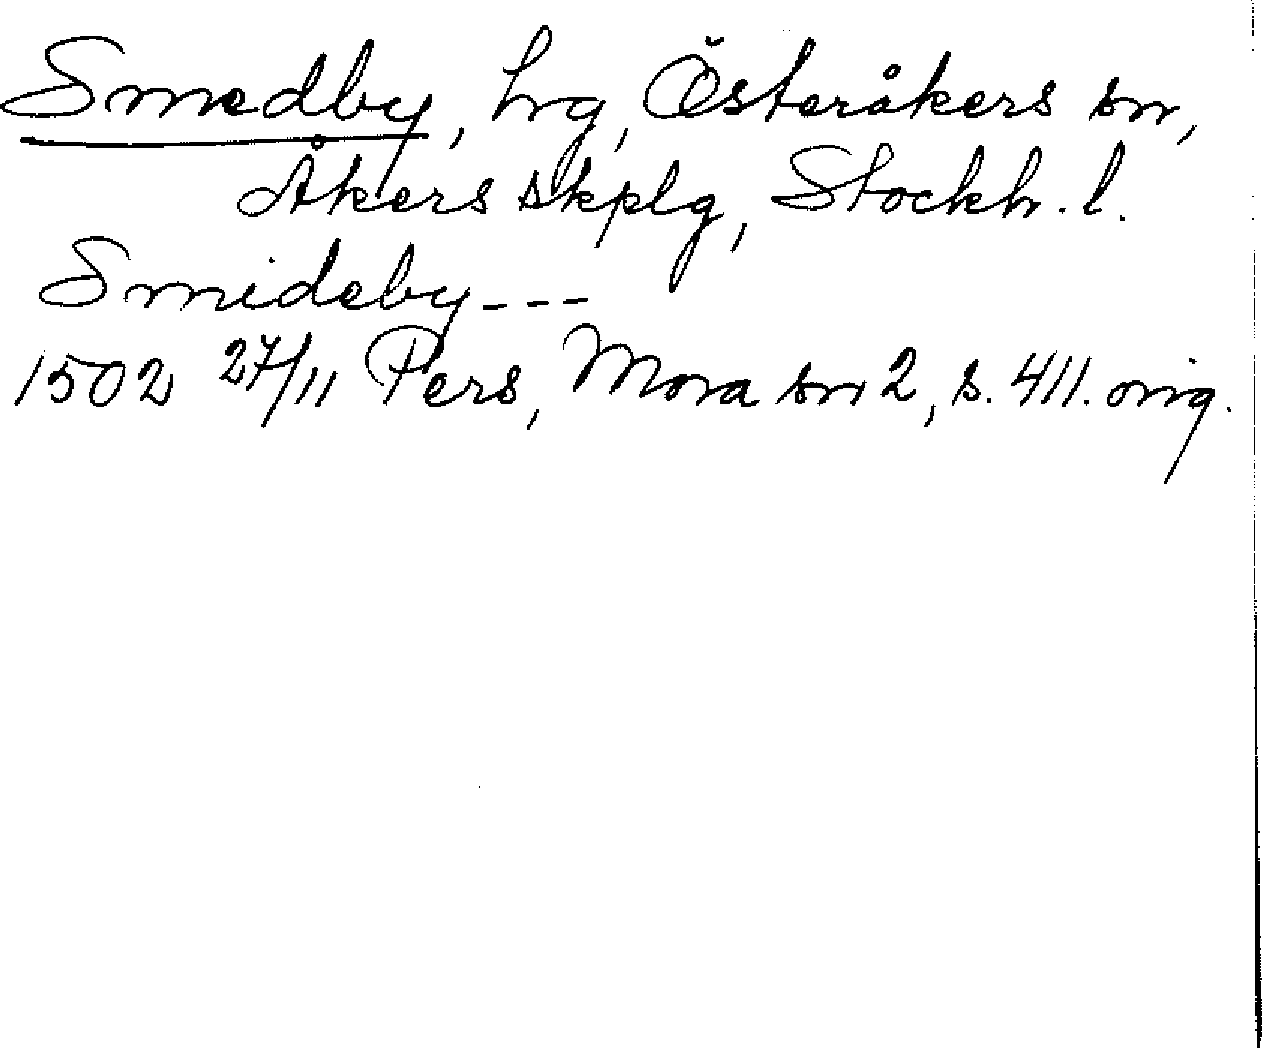 Smedby, hg, Österåkers sn,
Åkers skplg, Stockh. l.
Smideby---
1502 27/11 Pers, Mora sn 2, s. 411. orig.